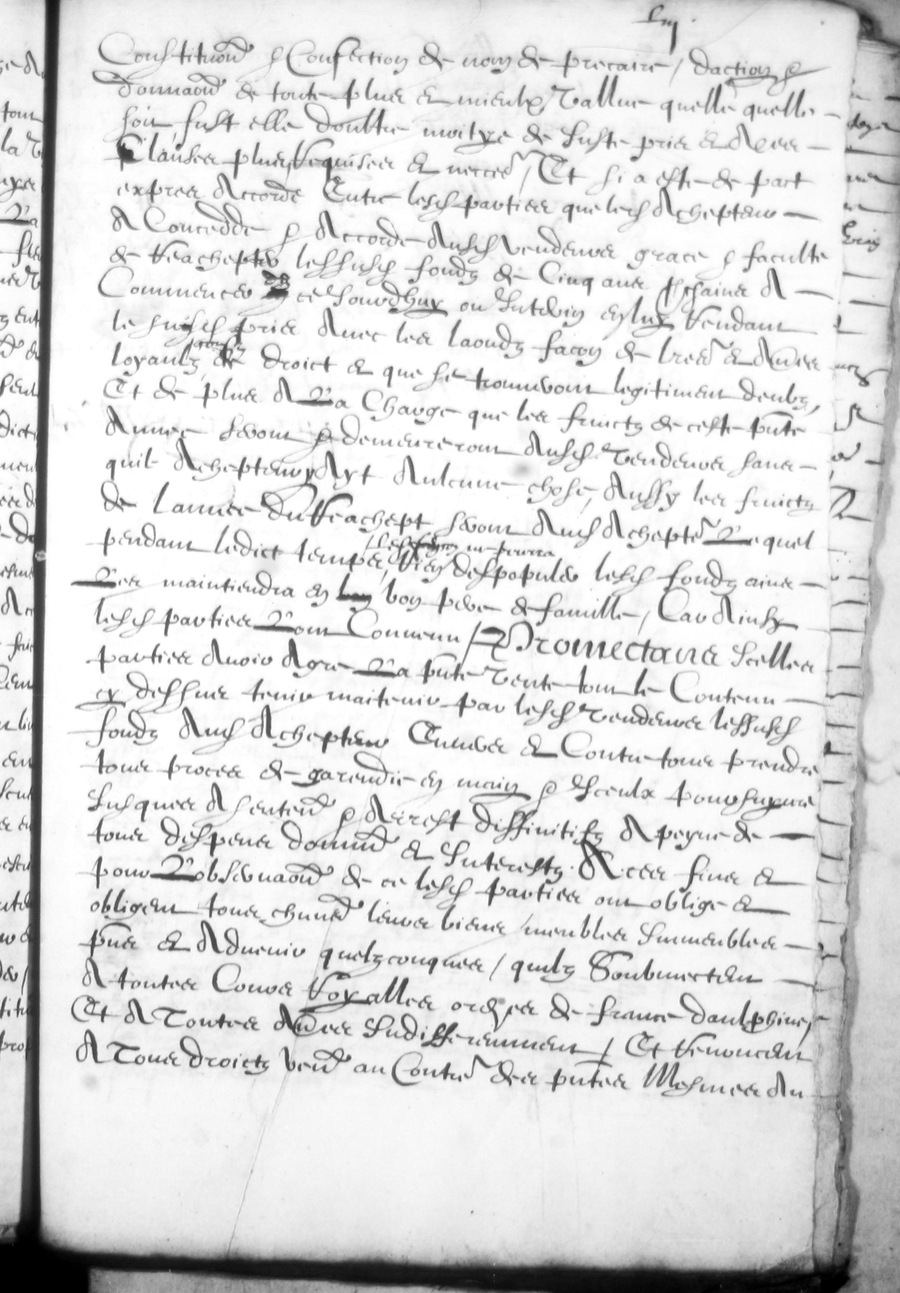 Lvj
Constitution̄ & Confection de nom de precaire / daction &
donnaōn de toute plus et mieulx vallue quelle quelle
soit fust elle doultre moitye de Juste pris et Aves
Clauses plus Requises et necess.res / Et si a este de part
expres Accorde Entre lesd parties que led Achepteur
A Concedde & Accorde Ausd vendeurs grace & faculte
de Reachepter lesd susd fondz de Cinq ans p̄chains A
Commencer de ce Jourdhuy en luy Rendant
le susd pris Avec les laoudz facon de lres et Avers
loyaulx de droict et que se trouveront legitiment deubz,
Et de plus A La Charge que les fruictz de ceste pn̄te
Annee seront & demeureront Ausd vendeurs sans
quil Achepteur y Ayt Aulcune chose, Aussy les fruictz
de lannee du Reachept seront Aud Achept.r Lequel
pendant ledict temps ne pourra despopuler lesd fondz ains
Les maintiendra en bon pere de famille / Car Ainsy
lesd parties Lont Convenu / Promectans Jcelles
parties Avoir Agre La pn̄te vente tout le Contenu
cy dessus tenir maitenir par lesd vendeurs lesd susd
fondz Aud Achepteur Envers et Contre tous prendre
tous proces de garendie en main & Jceulx poursuyvre
Jusques A senten.e & Arrest diffinitifz A peyne de
tous despens dommd et Jnterestz. A ces fins et
pour Lobservaōn de ce lesd parties ont oblige et
obligent tous chunēd leurs biens / meubles Jmmeubles
pn̄s et Advenir quelzconques / quilz Soubmectent
A toutes Cours Royalles ord.res de france daulphine,
Et A Toutes Aūes Jndifferemment / Et Renoncent
A Tous droictz au Contre des pn̄tes Mesmes Au